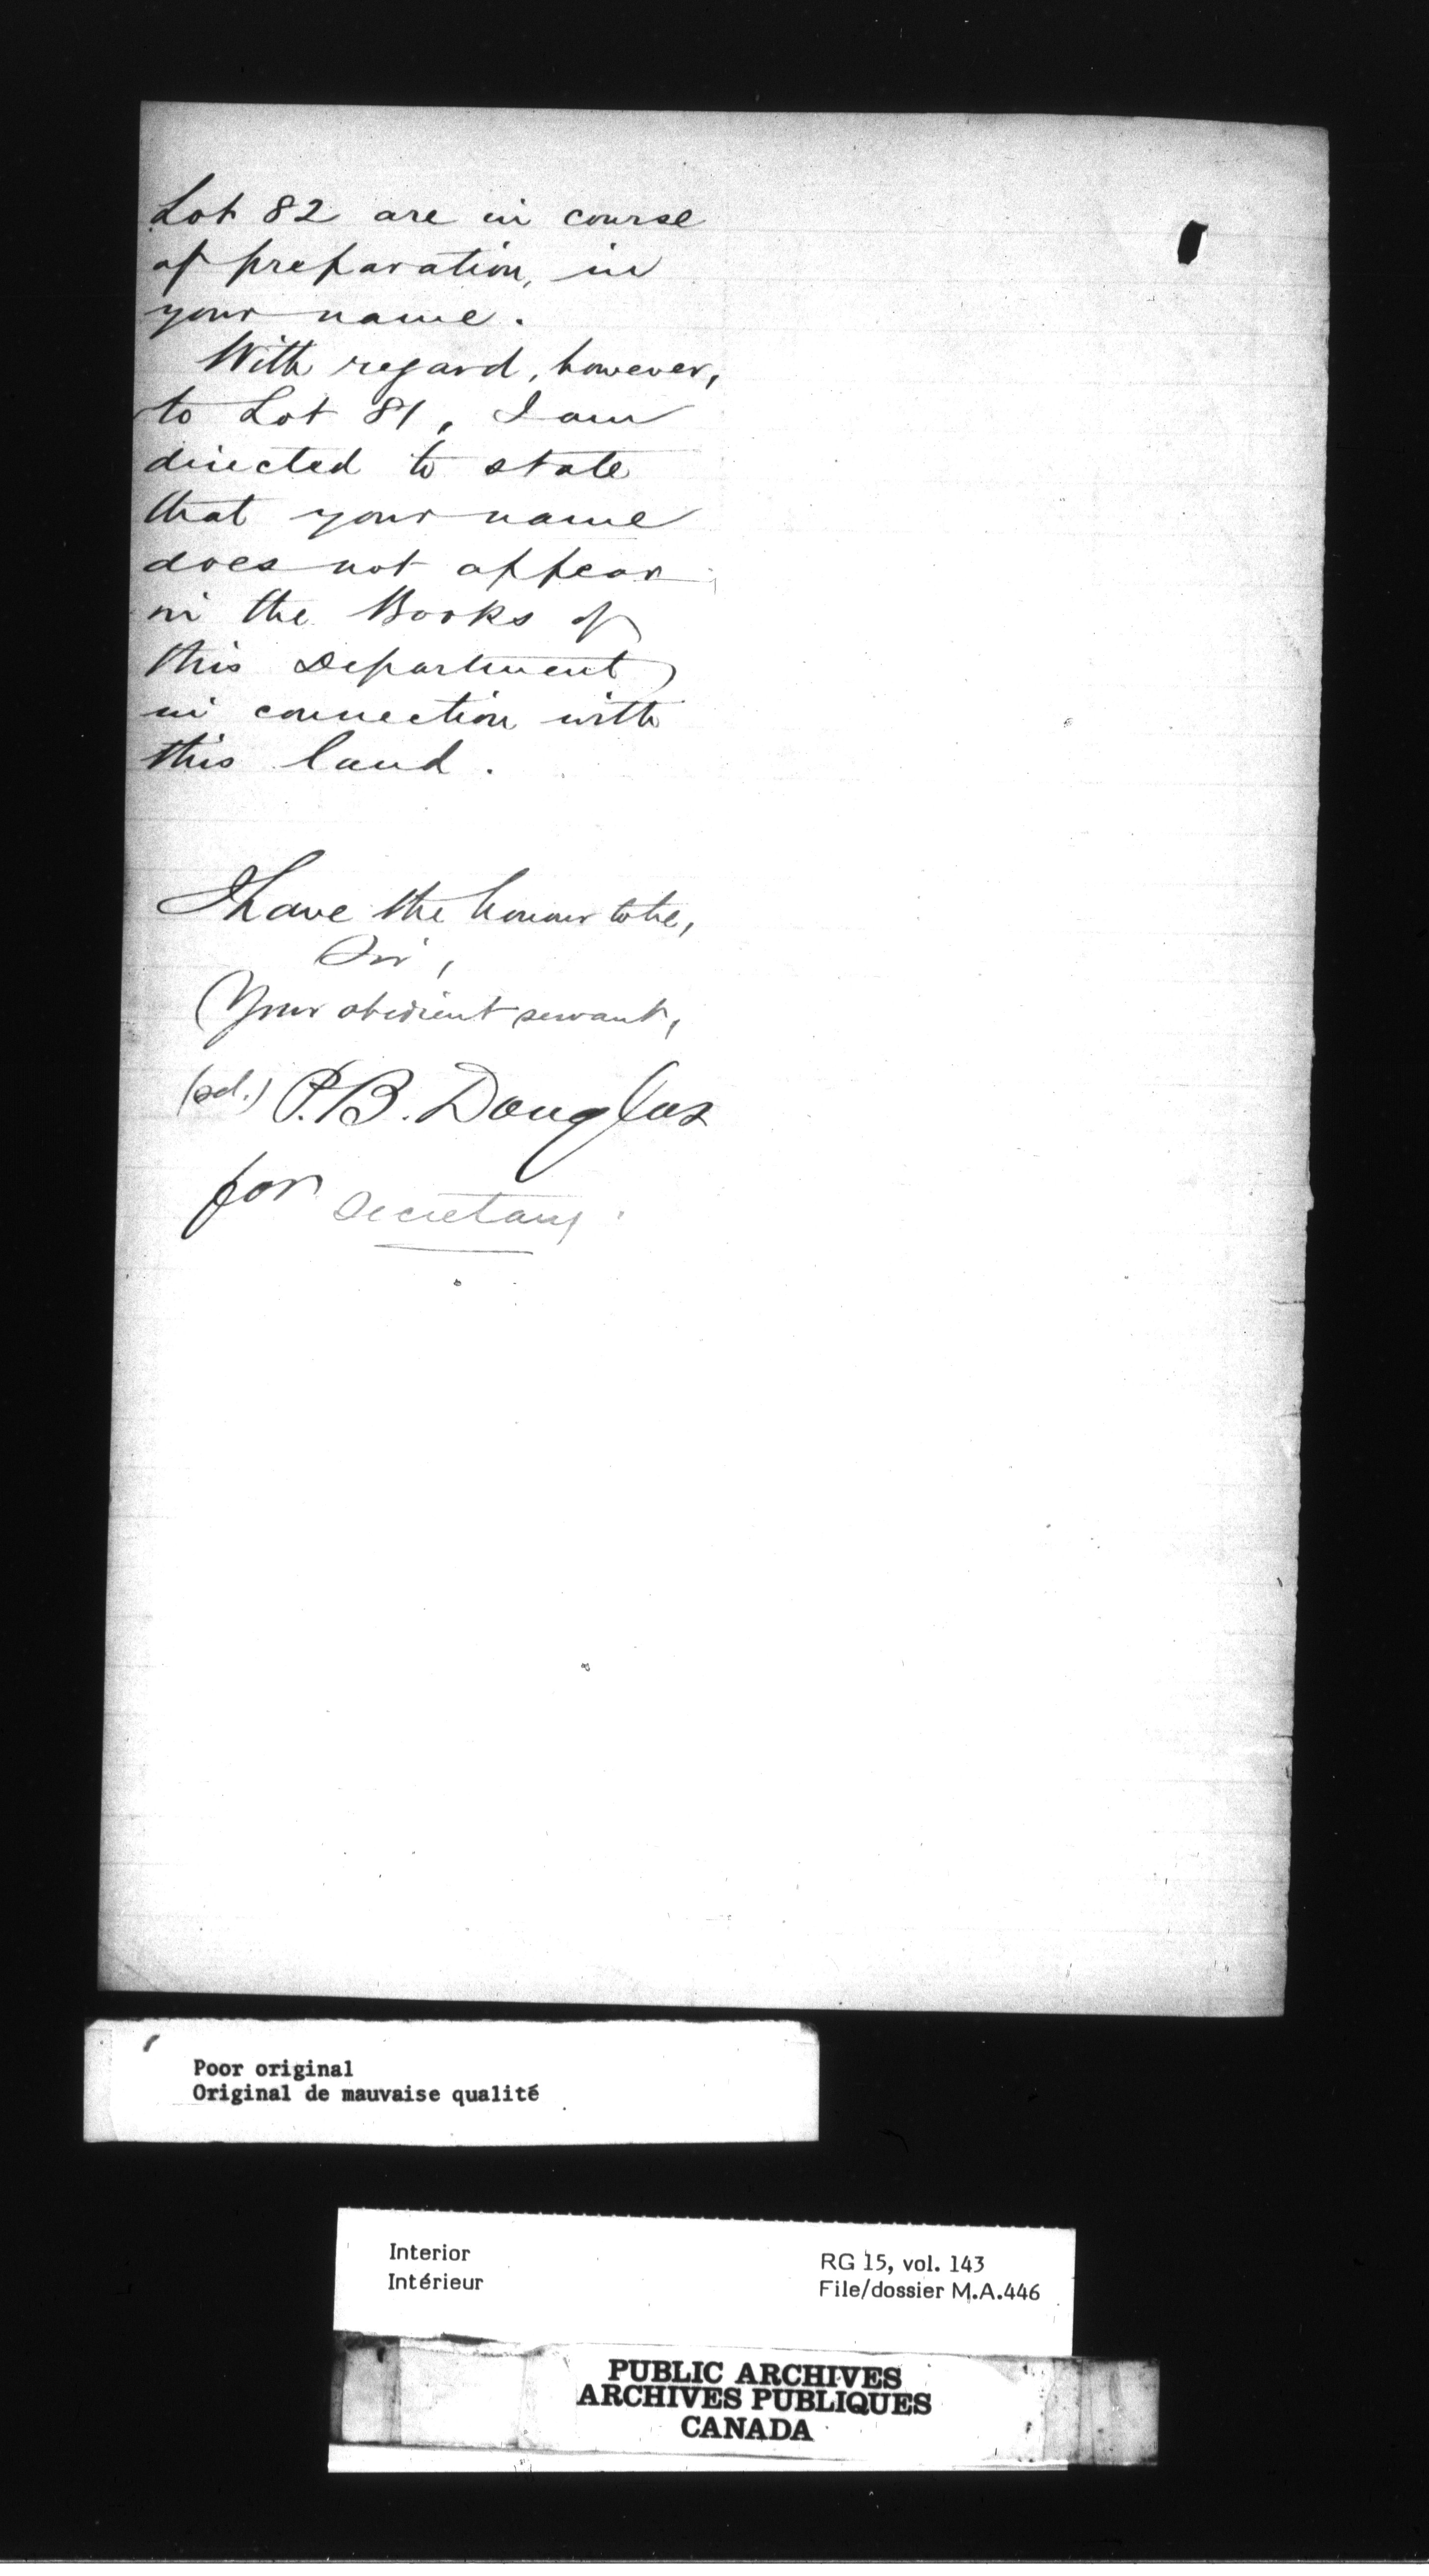 Lot 82 are in course
of preparation, in
your name.
With regard, however,
to Lot 81, I am
directed to state
that your name
does not appear
in the Books of
this Department
in connection with
this land.
I have the honour to be,
Sir,
Your obedient servant,
(sd.) P.B. Douglas
for Secretary.
Poor original
Original de mauvaise qualité
Interior
Intérieur
RG 15, vol. 143
File/dossier M.A.446
PUBLIC ARCHIVES
ARCHIVES PUBLIQUES
CANADA